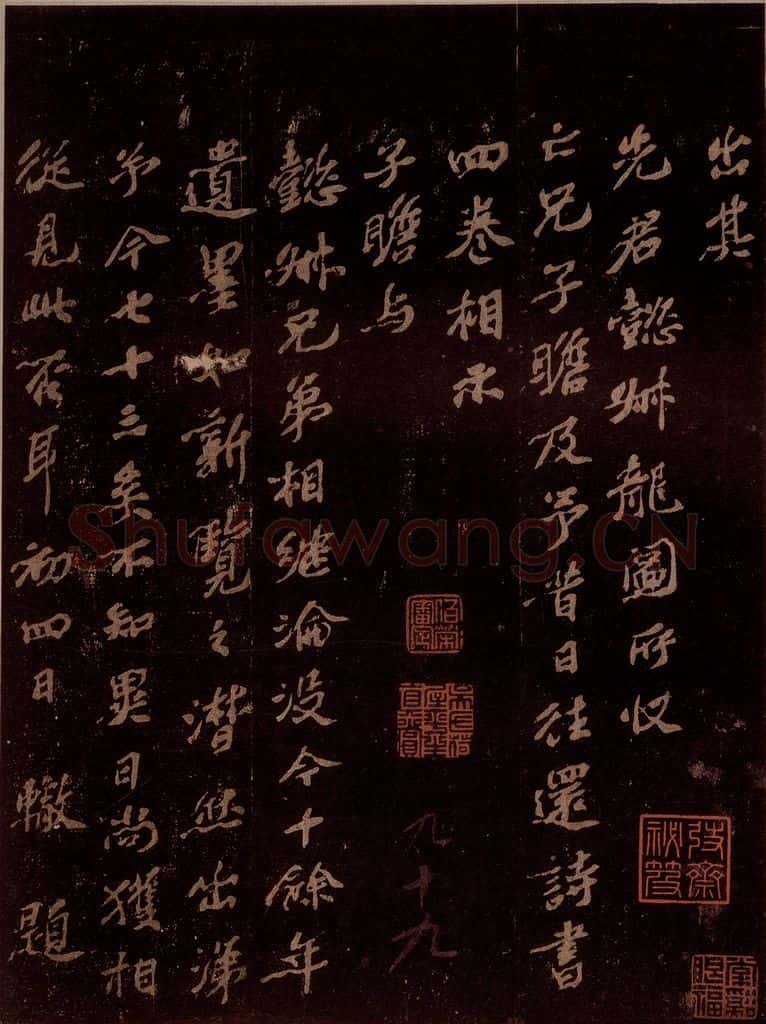 出其
先君懿叔龍圖所收
亡兄子瞻及予昔日往還詩書
四卷相示
子瞻与
懿叔兄弟相継淪没今十餘年
遺墨如新覽之潸然出涕
予今七十三矣不知異日尚獲相
從見此否耳初四日 轍題
九十九
Shufawang.CN